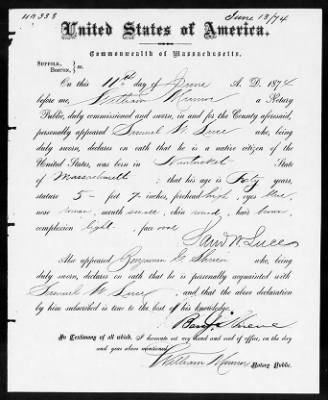 June 13/74
United States of America.
Commonwealth of Massachusetts.
SUFFOLK,
BOSTON, } SS.
On this 11th day of June A. D. 1874
before me, William Munroe a Notary
Public, duly commissioned and sworn, in and for the County aforesaid,
personally appeared Samuel W. Luce who, being
duly sworn, declares on oath that he is a native citizen of the
United States, was born in Nantucket State
of Massachusetts ; that his age is Fifty years,
stature 5 feet 7 inches, forehead high, eyes blue,
nose roman, mouth small, chin round, hair brown
complexion light face oval
Sam W. Luce
Also appeared Benjamin G. who, being
duly sworn, declares on oath that he is personally acquainted with
Samuel W. Luce , and that the above declaration
by him subscribed is true to the best of his knowledge.
Benj.
In Testimony of all which, I hereunto set my hand and seal of office, on the day
and year above mentioned.
William Munroe Notary Public.